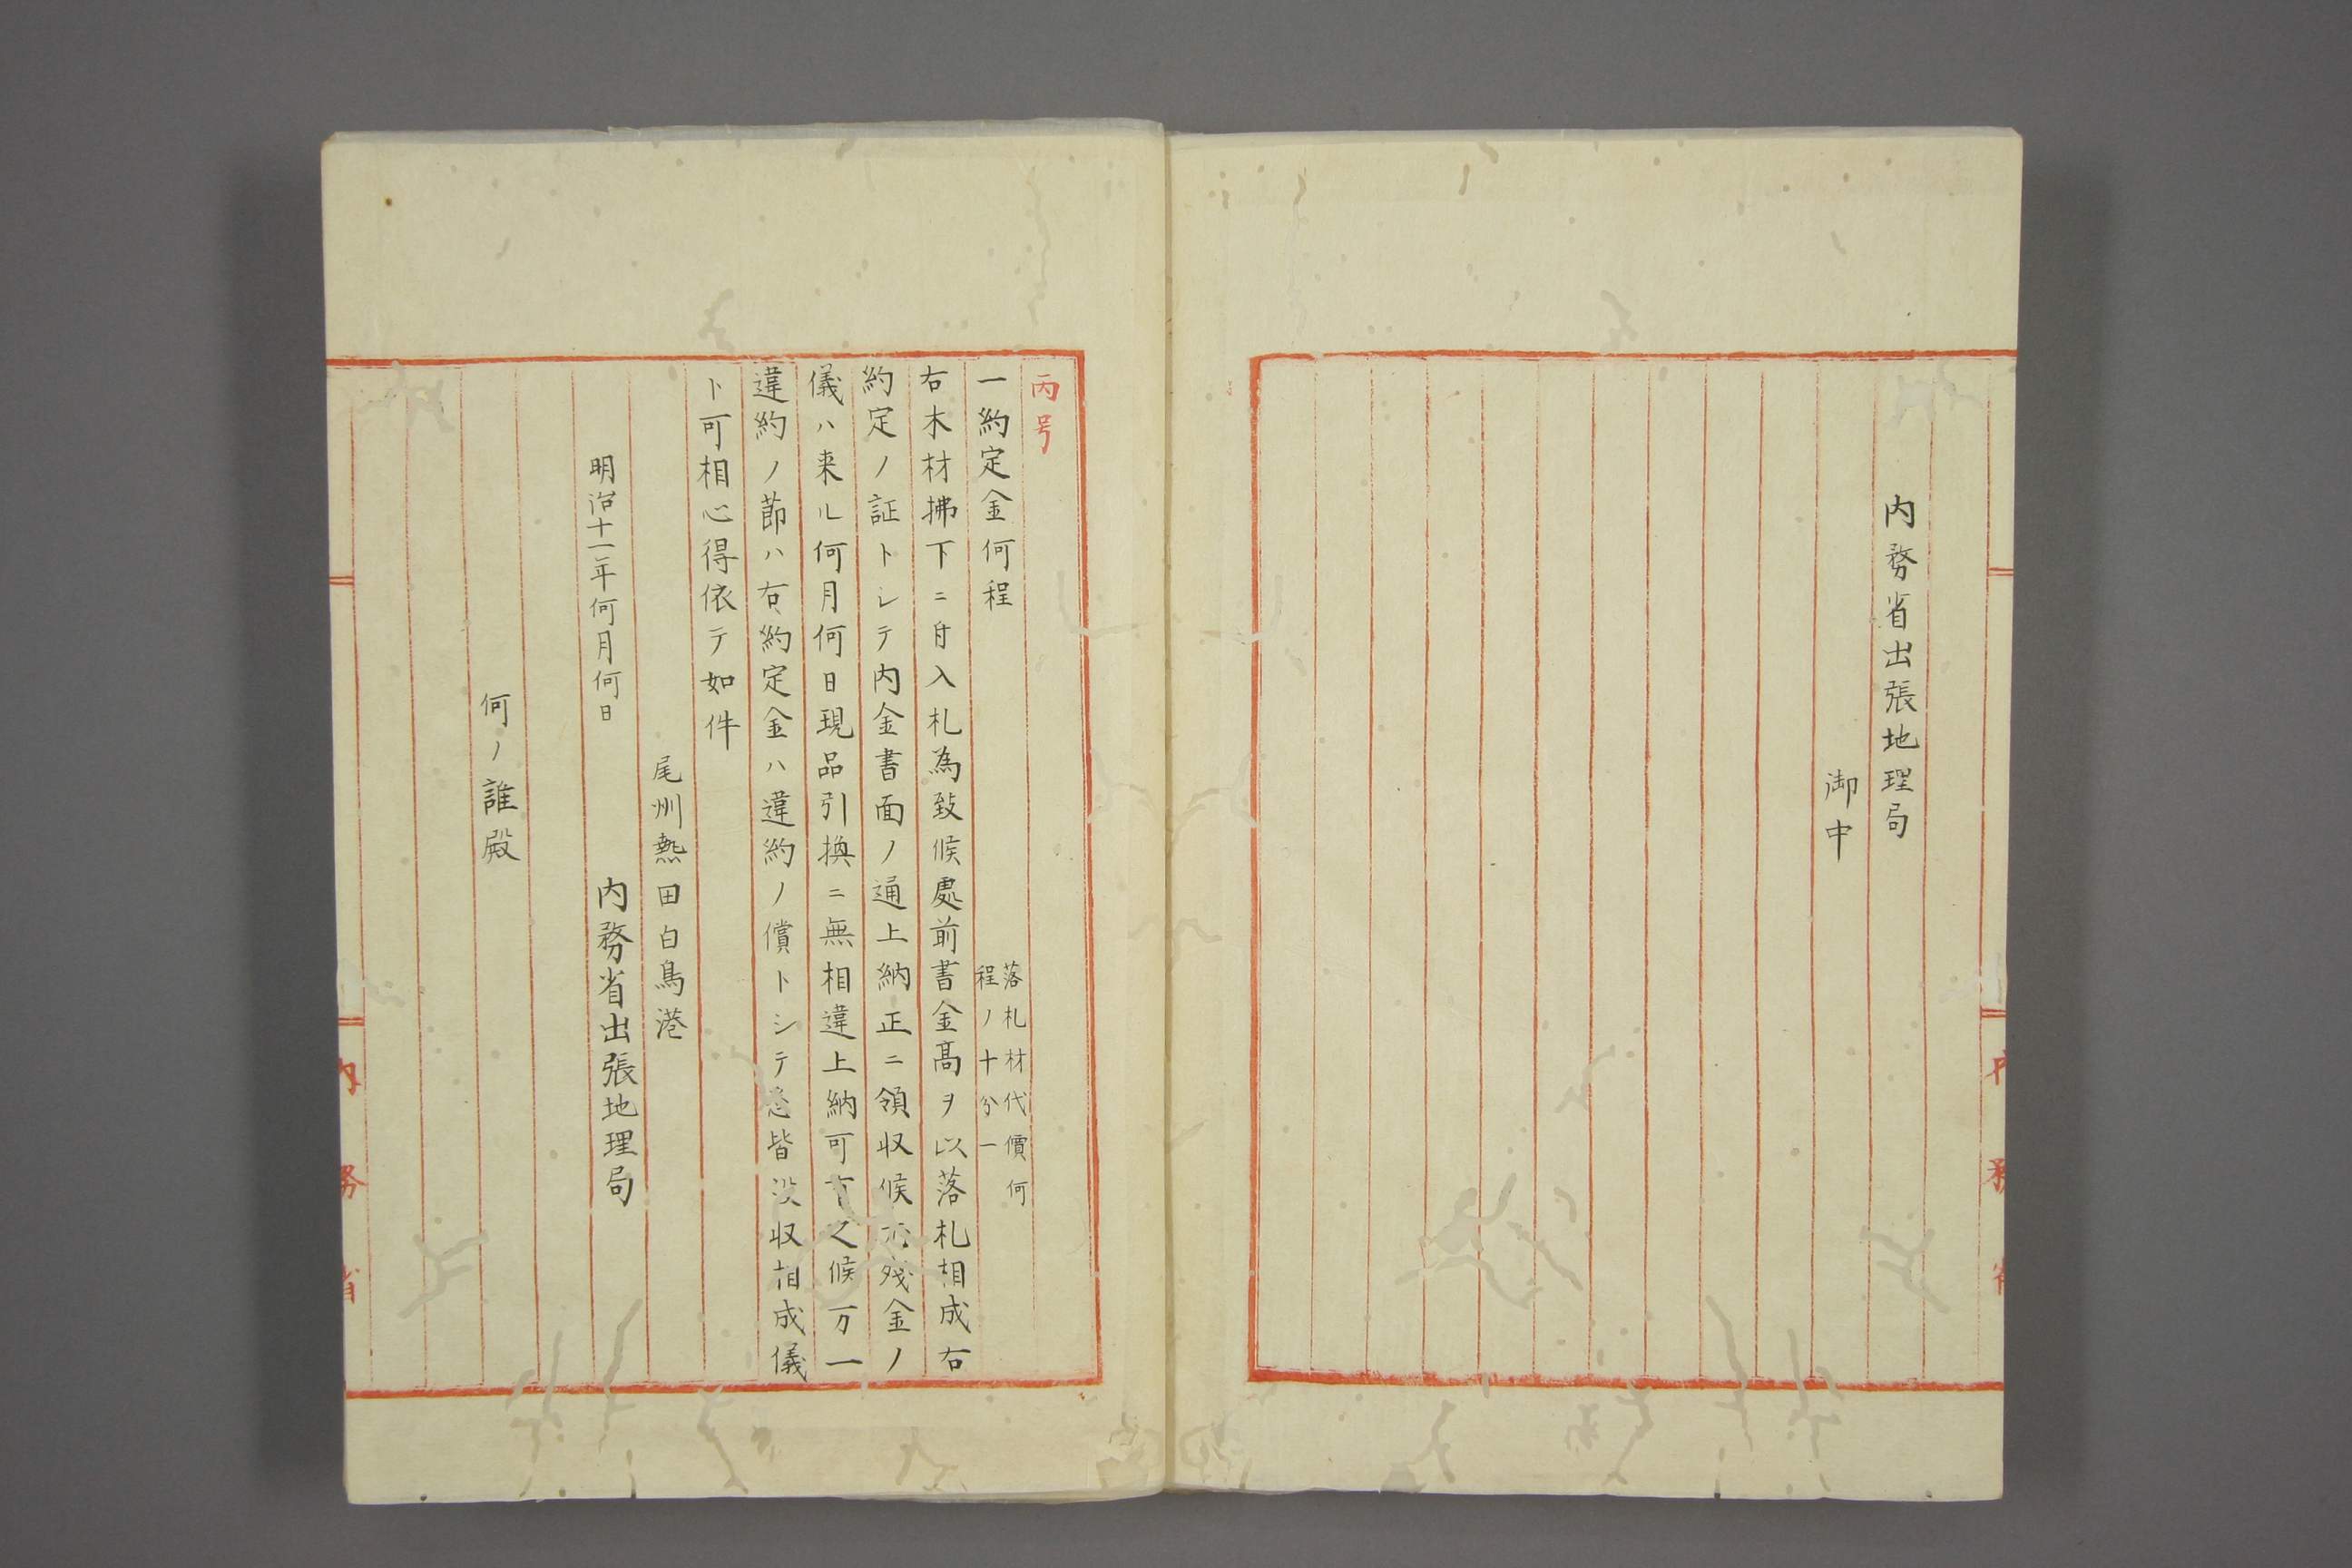 内務省出張地理局
御中
内務省
丙号
一約定金何程
落札材代價何
程ノ十分一
右木材拂下ニ付入札為致候處前書金髙ヲ以落札相成右
約定ノ証トシテ内金書面ノ通上納正ニ領収候也残金ノ
儀ハ来ル何月何日現品引換ニ無相違上納可有之候万一
違約ノ節ハ右約定金ハ違約ノ償トシテ悉皆没収相成儀
ト可相心得依テ如件
尾州熱田白鳥港
明治十一年何月何日
内務省出張地理局
何ノ誰殿
内務省